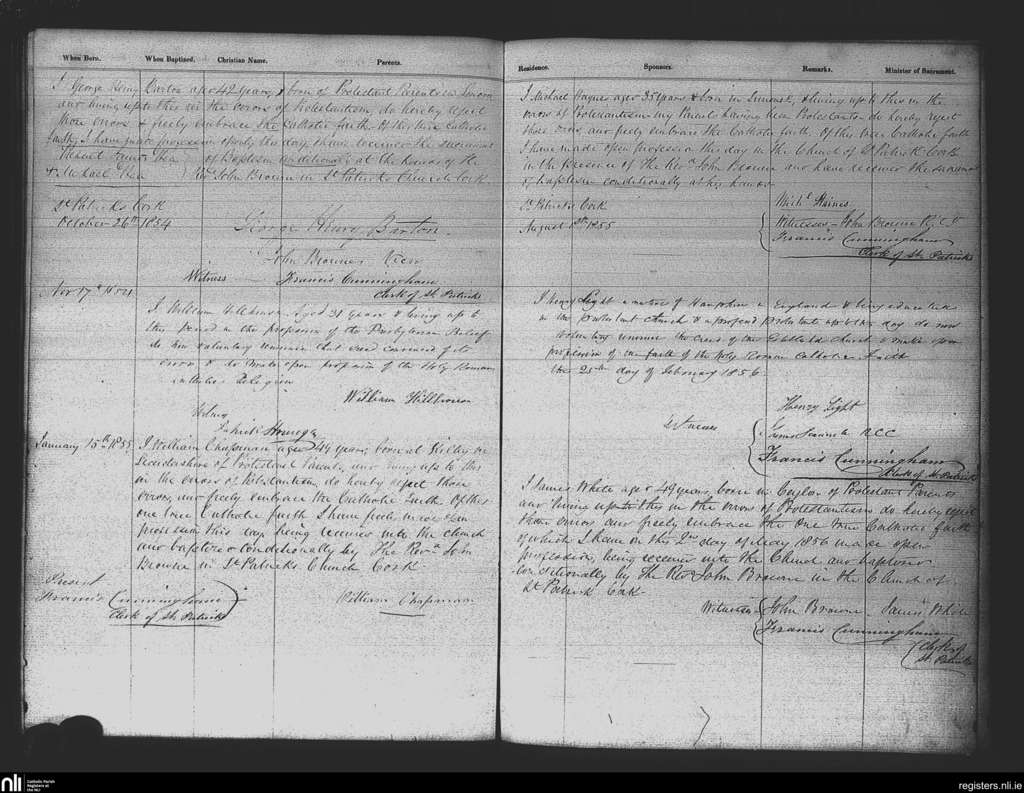 When Born. When Baptized. Christian Name. Parents.
I George Henry Barton aged 42 years & born of Protestant Parents in
and living up to this in the errors of Protestantism, do hereby reject
those errors, & freely embrace the Catholic faith. Of the One Catholic
faith, I have made profession openly this day, & have received the sacrament
of Baptism conditionally at the hands of the
& Michael Shea Revd John Browne in St Patricks Church Cork
St Patricks Cork
October 26th 1854
George Henry Barton.
John Browne
Witness Francis Cunningham
Clerk of St. Patricks
Nov 17th 1854
I William aged 31 years & being up to
this period in the profession of the Presbyterian Belief
do now voluntary renounce that and convinced of its
error & do make open profession of the Holy Roman
Catholic Religion
William
January 15th 1855 I William Chapman aged 44 years, born at in
of Protestant Parents, and living up to this
in the errors of Protestantism, do hereby reject those
errors, and freely embrace the Catholic faith. Of this
one true Catholic faith I have made open
profession this day being received into the church
and baptized conditionally by The Revd John
Browne in St Patricks Church Cork
Present
Francis Cunningham
Clerk of St. Patricks
William Chapman
Residence. Sponsors. Remarks. Minister of Sacrament.
I Michael aged 35 years & born in & living up to this in the
errors of Protestantism my Parents having been Protestants do hereby reject
those errors, and freely embrace the Catholic faith. Of this true Catholic faith
I have made open profession this day in the Church of St Patrick Cork
in the presence of The Revd John Browne and have received the sacrament
of baptism conditionally at his hands
St Patricks Cork
August 1st 1855
Michl Haines
Witnesses - John Browne R.C.C
Francis Cunningham
Clerk of St. Patricks
I Henry Light a native of in England & being educated
in the protestant church & a professed protestant up to this day do now
voluntary renounce the errors of the Established church & make open
profession of the faith of the Holy Roman Catholic Faith
the 25th day of February 1856
Henry Light
Witnesses
R.C.C.
Francis Cunningham
Clerk of St. Patricks
I James White aged 49 years, born in Ceylon of Protestant Parents
and living up to this in the errors of Protestantism do hereby reject
those errors and freely embrace the one true Catholic faith
of which I have on this 2nd day of May 1856 made open
profession, being received into the Church and baptized
conditionally by the Revd John Browne in the Church of
St Patrick Cork.
Witnesses John Browne James White
Francis Cunningham
Clerk of
St. Patricks
nli
Catholic Parish
Registers at
the NLI
registers.nli.ie